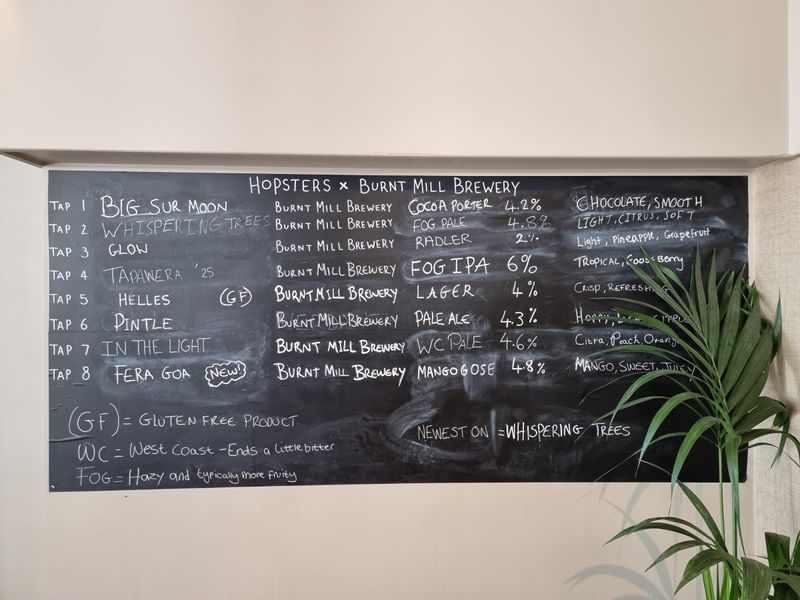 HOPSTERS x BURNT MILL BREWERY
TAP 1 BIG SUR MOON BURNT MILL BREWERY COCOA PORTER 4.2% CHOCOLATE, SMOOTH
TAP 2 WHISPERING TREES BURNT MILL BREWERY FOG PALE 4.8% LIGHT, CITRUS, SOFT
TAP 3 GLOW BURNT MILL BREWERY RADLER 2% Light, Pineapple, Grapefruit
TAP 4 TAPAWERA '25 BURNT MILL BREWERY FOG IPA 6% TROPICAL, Gooseberry
TAP 5 HELLES (GF) BURNT MILL BREWERY LAGER 4% CRISP, REFRESHING
TAP 6 PINTLE BURNT MILL BREWERY PALE ALE 4.3% HOPPY, CITRUS
TAP 7 IN THE LIGHT BURNT MILL BREWERY WC PALE 4.6% Citra, Peach, Orange
TAP 8 FERA GOA NEW! BURNT MILL BREWERY MANGO GOSE 4.8% MANGO, SWEET, JUICY
(GF) = GLUTEN FREE PRODUCT
NEWEST ON = WHISPERING TREES
WC = West Coast - Ends a little bitter
FOG = Hazy and typically more fruity